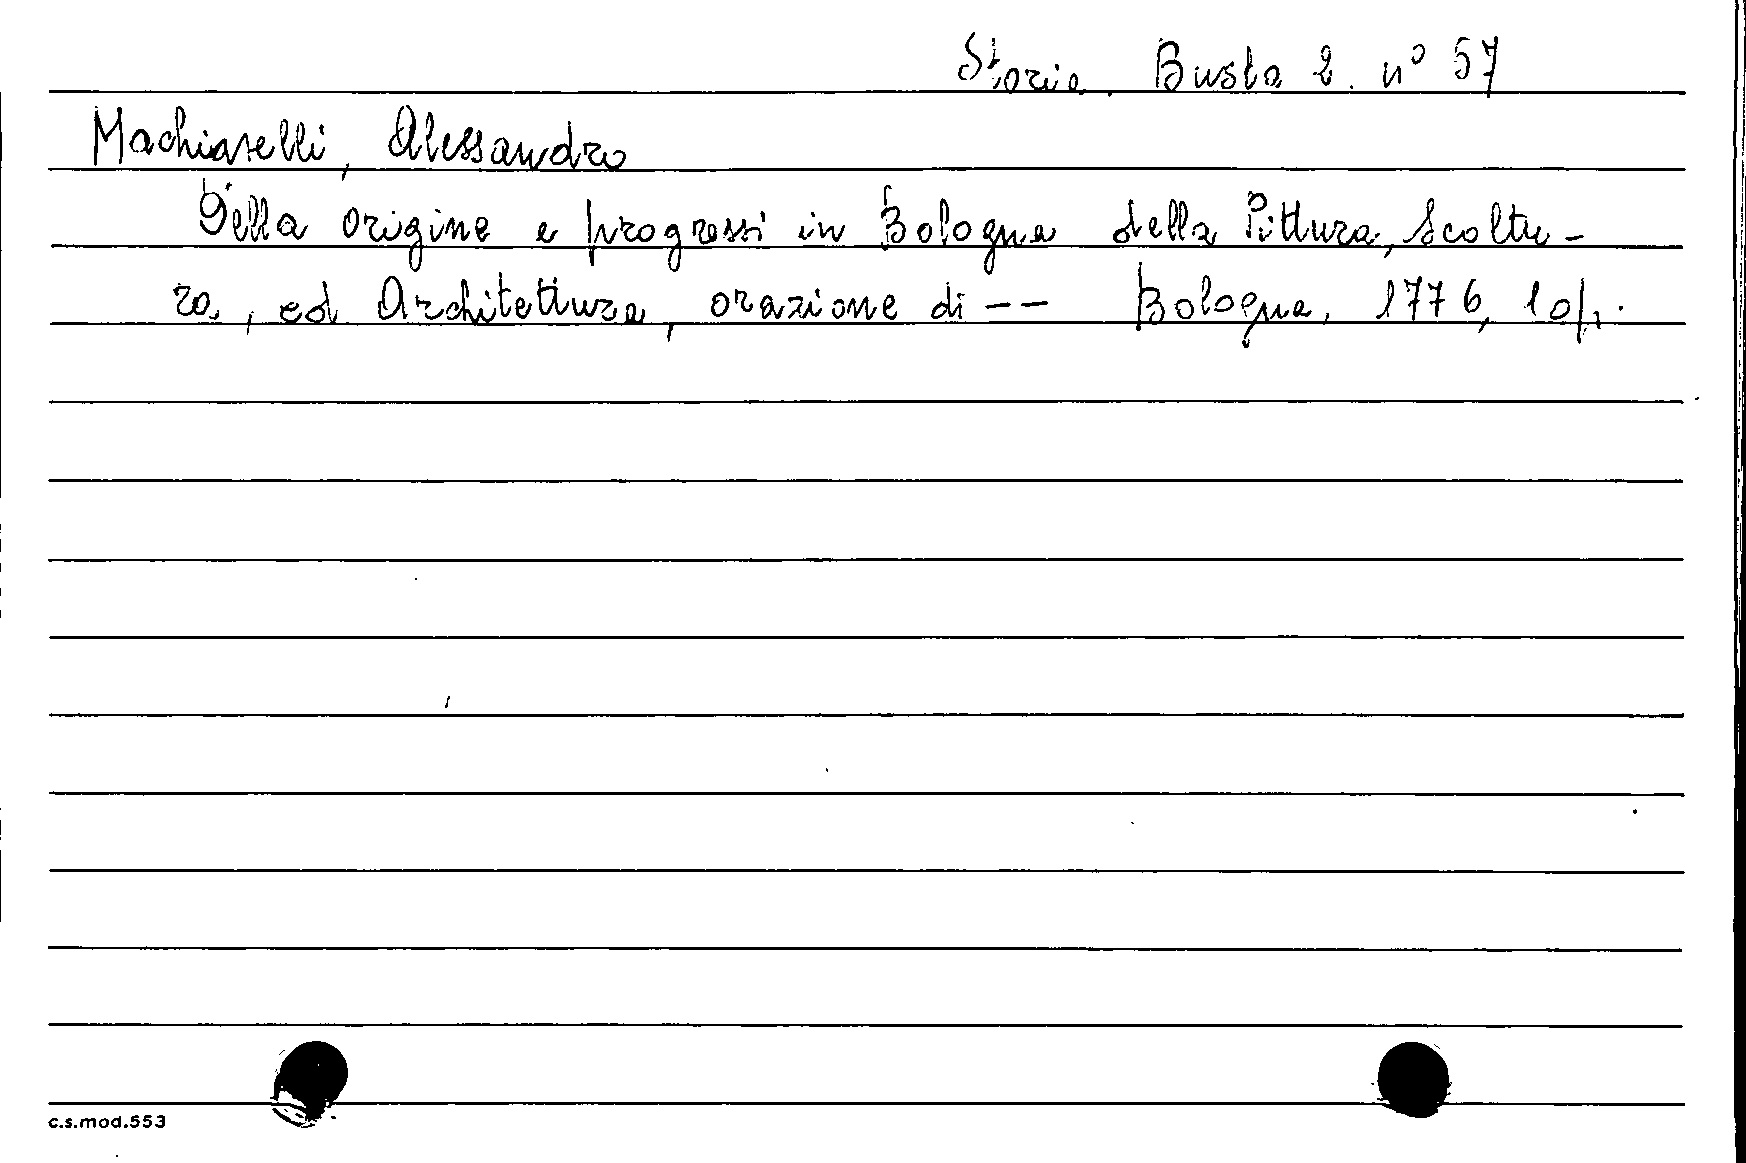 Storia. Busta 2. n° 57
Machiavelli, Alessandro
Della origine e progressi in Bologna della Pittura, Scoltu-
ra, ed Architettura, orazione di -- Bologna, 1776,
c.s.mod.553